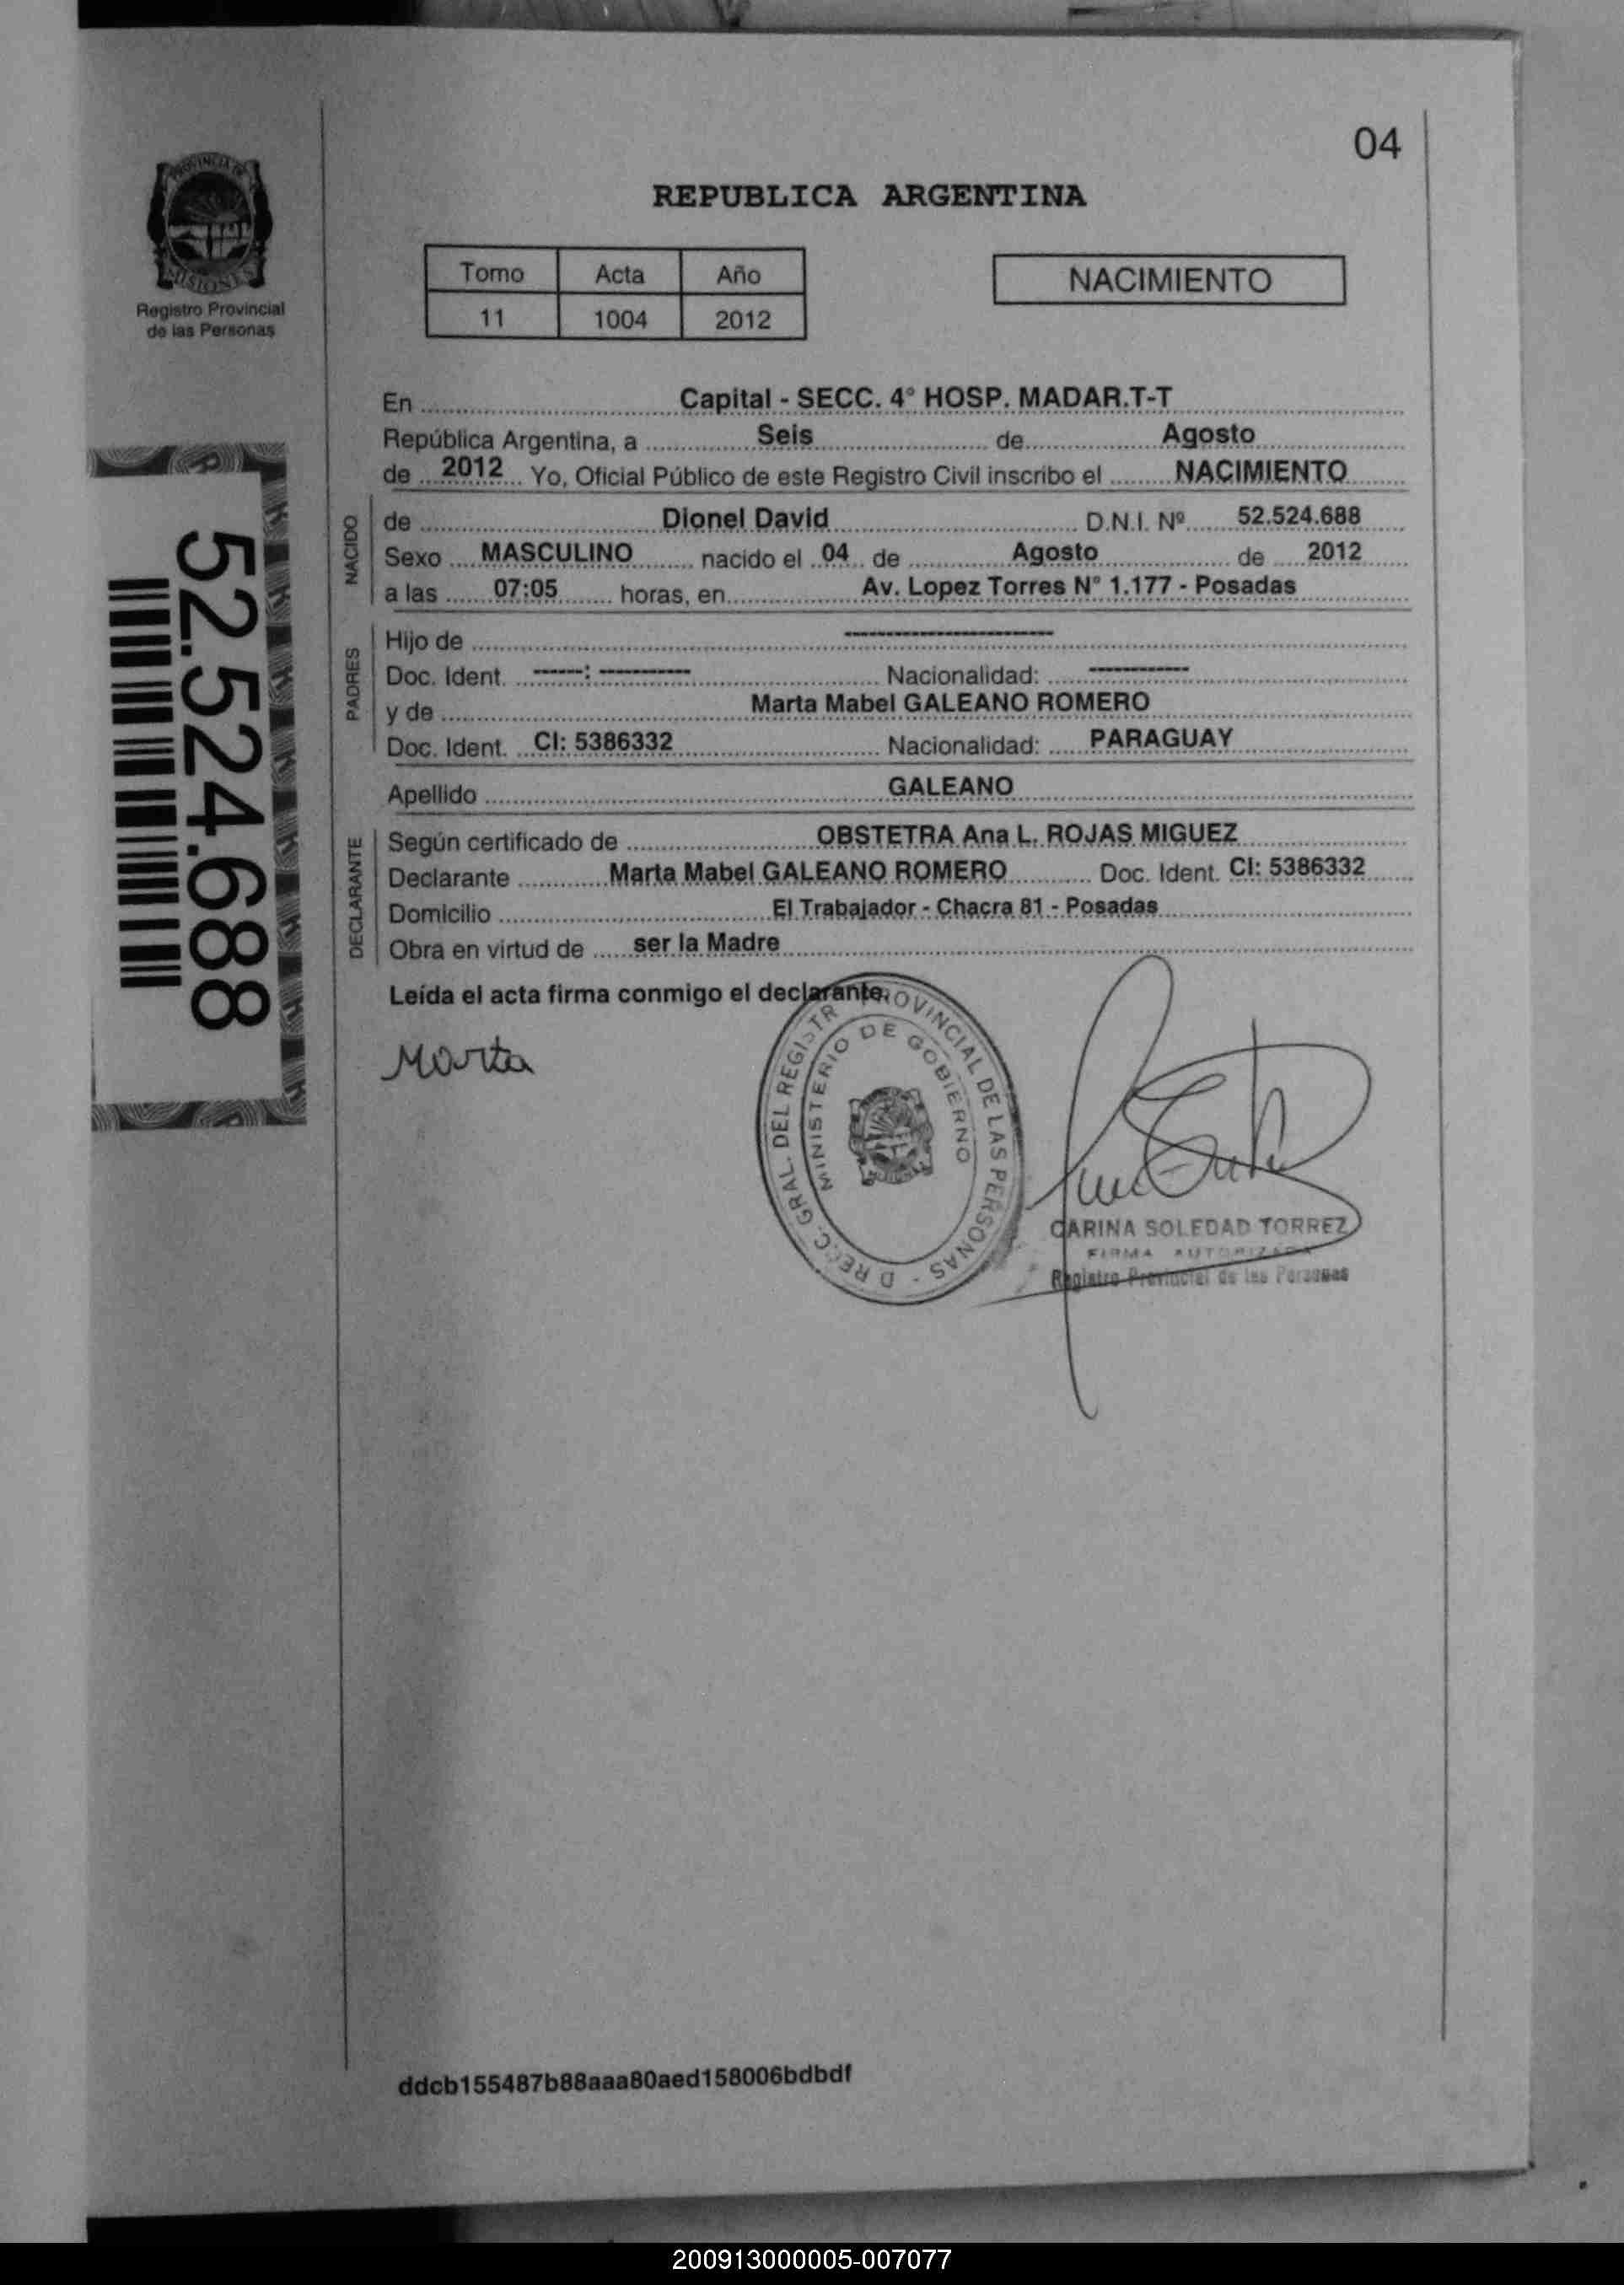 04
PROVINCIA DE
MISIONES
Registro Provincial
de las Personas
REPUBLICA ARGENTINA
Tomo Acta Año
11 1004 2012
NACIMIENTO
52.524.688
En Capital - SECC. 4° HOSP. MADAR.T-T
República Argentina, a Seis de Agosto
de 2012 Yo, Oficial Público de este Registro Civil inscribo el NACIMIENTO
NACIDO
de Dionel David D.N.I. Nº 52.524.688
Sexo MASCULINO nacido el 04 de Agosto de 2012
a las 07:05 horas, en Av. Lopez Torres N° 1.177 - Posadas
PADRES
Hijo de --------------------
Doc. Ident. ------: ----------- Nacionalidad: ------------
y de Marta Mabel GALEANO ROMERO
Doc. Ident. CI: 5386332 Nacionalidad: PARAGUAY
Apellido GALEANO
DECLARANTE
Según certificado de OBSTETRA Ana L. ROJAS MIGUEZ
Declarante Marta Mabel GALEANO ROMERO Doc. Ident. CI: 5386332
Domicilio El Trabajador - Chacra 81 - Posadas
Obra en virtud de ser la Madre
Leída el acta firma conmigo el declarante.
Marta
GRAL. DEL REGISTR PROVINCIAL DE LAS PERSONAS
MINISTERIO DE GOBIERNO
CARINA SOLEDAD TORREZ
FIRMA AUTORIZADA
Registro Provincial de las Personas
ddcb155487b88aaa80aed158006bdbdf
200913000005-007077